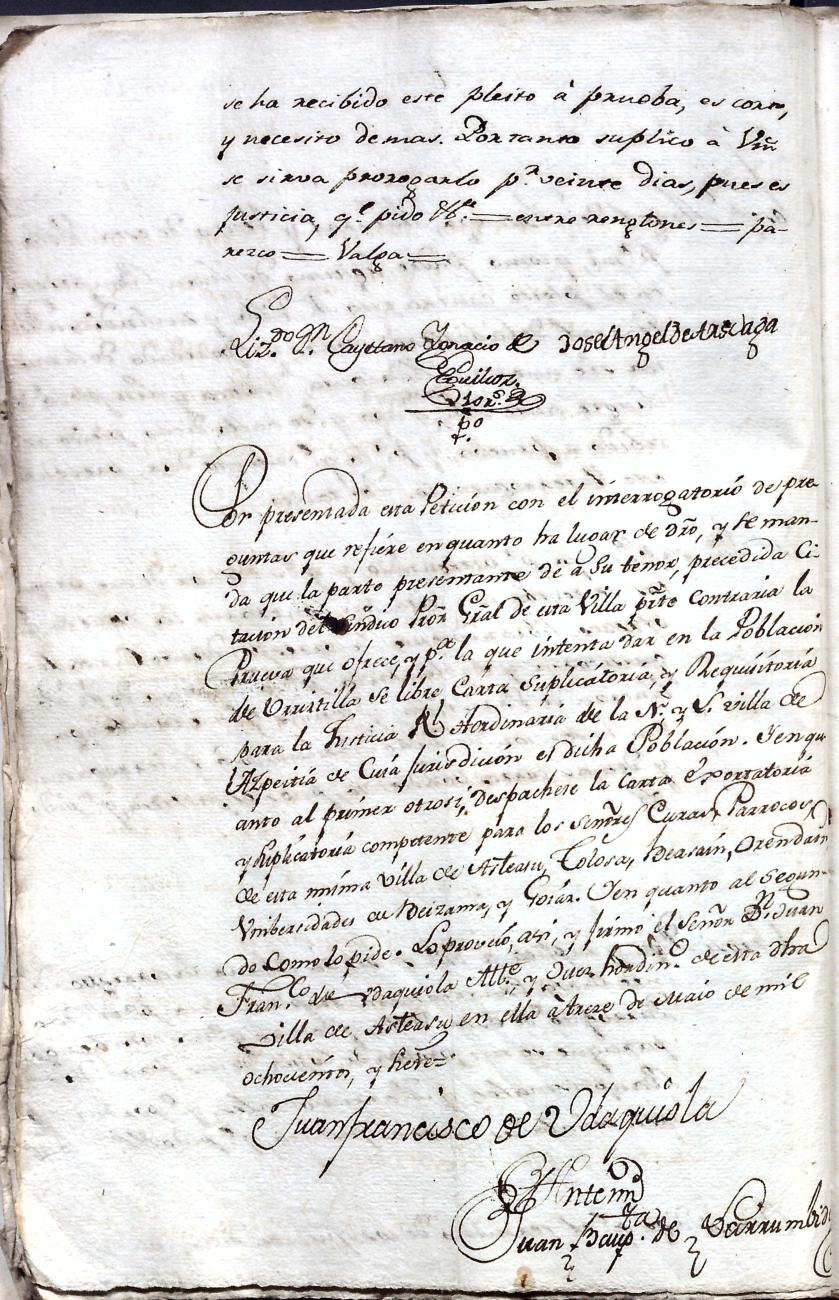 se ha recibido este pleito à prueba, es corto,
y necesito de mas. Por tanto suplico à Vm̃
se sirva prorogarlo pr. veinte dias, pues es
justicia, qe. pido &a. = entre renglones = pa-
rezco = Valga =
Lizdo. Dn. Cayettano Ygnacio de Josef Angel de Aseaga
Eguilior.
Dros. 2
po
Por presentada esta Peticion con el interrogatorio de pre-
guntas que refiere en quanto ha lugar de dro, y se man-
da que la parte presentante dè a su tenor, precedida Ci-
tacion del Sindico Pror Gral de esta Villa pte contraria la
Prueva que ofrece, y pa. la que intenta dar en la Poblacion
de Urrestilla se libre Carta Suplicatoria, y Requisitoria
para la Justicia Rl. Hordinaria de la N. y L. Villa de
Azpeitia de Cuia Jurisdicion es dicha Poblacion. Y en qu-
anto al primer otrosi, despachese la Carta exortatoria
y suplicatoria competente para los señores Curas Parrocos
de esta misma Villa de Asteasu, Tolosa, Beasain, Orendain
Universidades de Beizama, y Goiaz. Y en quanto al Segun-
do Como lo pide. Lo proveiò, asi, y firmò el Señor Dn. Juan
Franco. de Udaquiola Alte. y Juez hordino. de esta dha
Villa de Asteasu, en ella à trece de Maio de mil
ochocientos, y siete=
Juan francisco de Udaquiola
Antemi
Juan Bapta. de Larrumbide